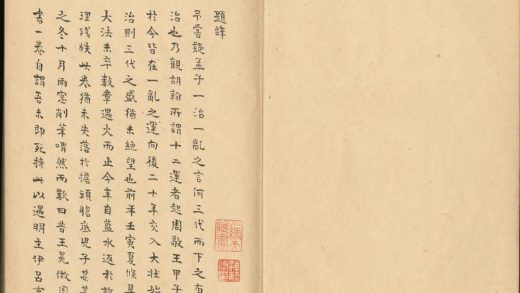 題辭
予嘗疑孟子一治一亂之言何三代而下之有
治也乃觀胡翰所謂十二運者起周敬王甲子
於今皆在一亂之運向後二十年交入大壯始
治則三代之盛猶未絕望也前年壬寅夏條具
大法未卒數章遇火而止今年自藍水返於故
理殘帙此卷猶未失落於擔頭艙底兒子某某
之冬十月雨窓削筆喟然而歎曰昔王冕倣周
書一卷自謂吾未即死持此以遇明主伊呂